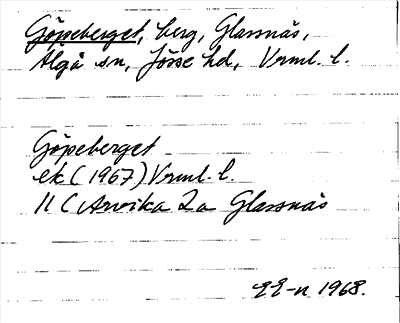 Göpeberget, berg, Glassnäs,
Älgå sn, Jösse hd, Vrml. l.
Göpeberget
ek (1967) Vrml. l.
11 C Arvika 2a Glassnäs
EE-n 1968.